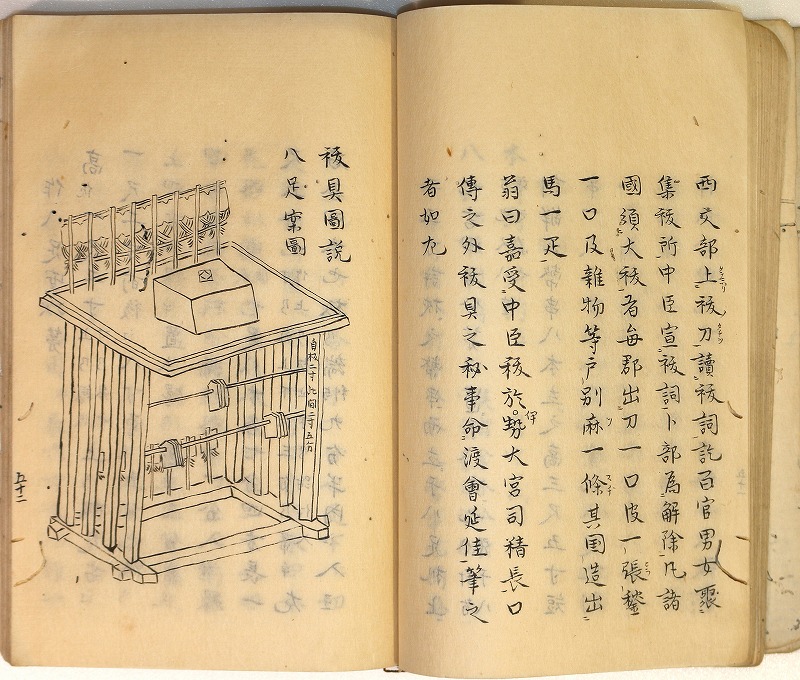 西文部上祓刀讀祓詞訖百官男女聚
集祓所中臣宣祓詞卜部為解除凡諸
國須大祓者毎郡出刀一口皮一張鍬
一口及雜物等戸別麻一條其国造出
馬一疋
翁曰嘉受中臣祓於伊勢大宮司精長口
傳之外祓具之秘事命渡會延佳筆之
者如左
祓具圖説
八足案圖
自板二寸此間二寸五分
五十二